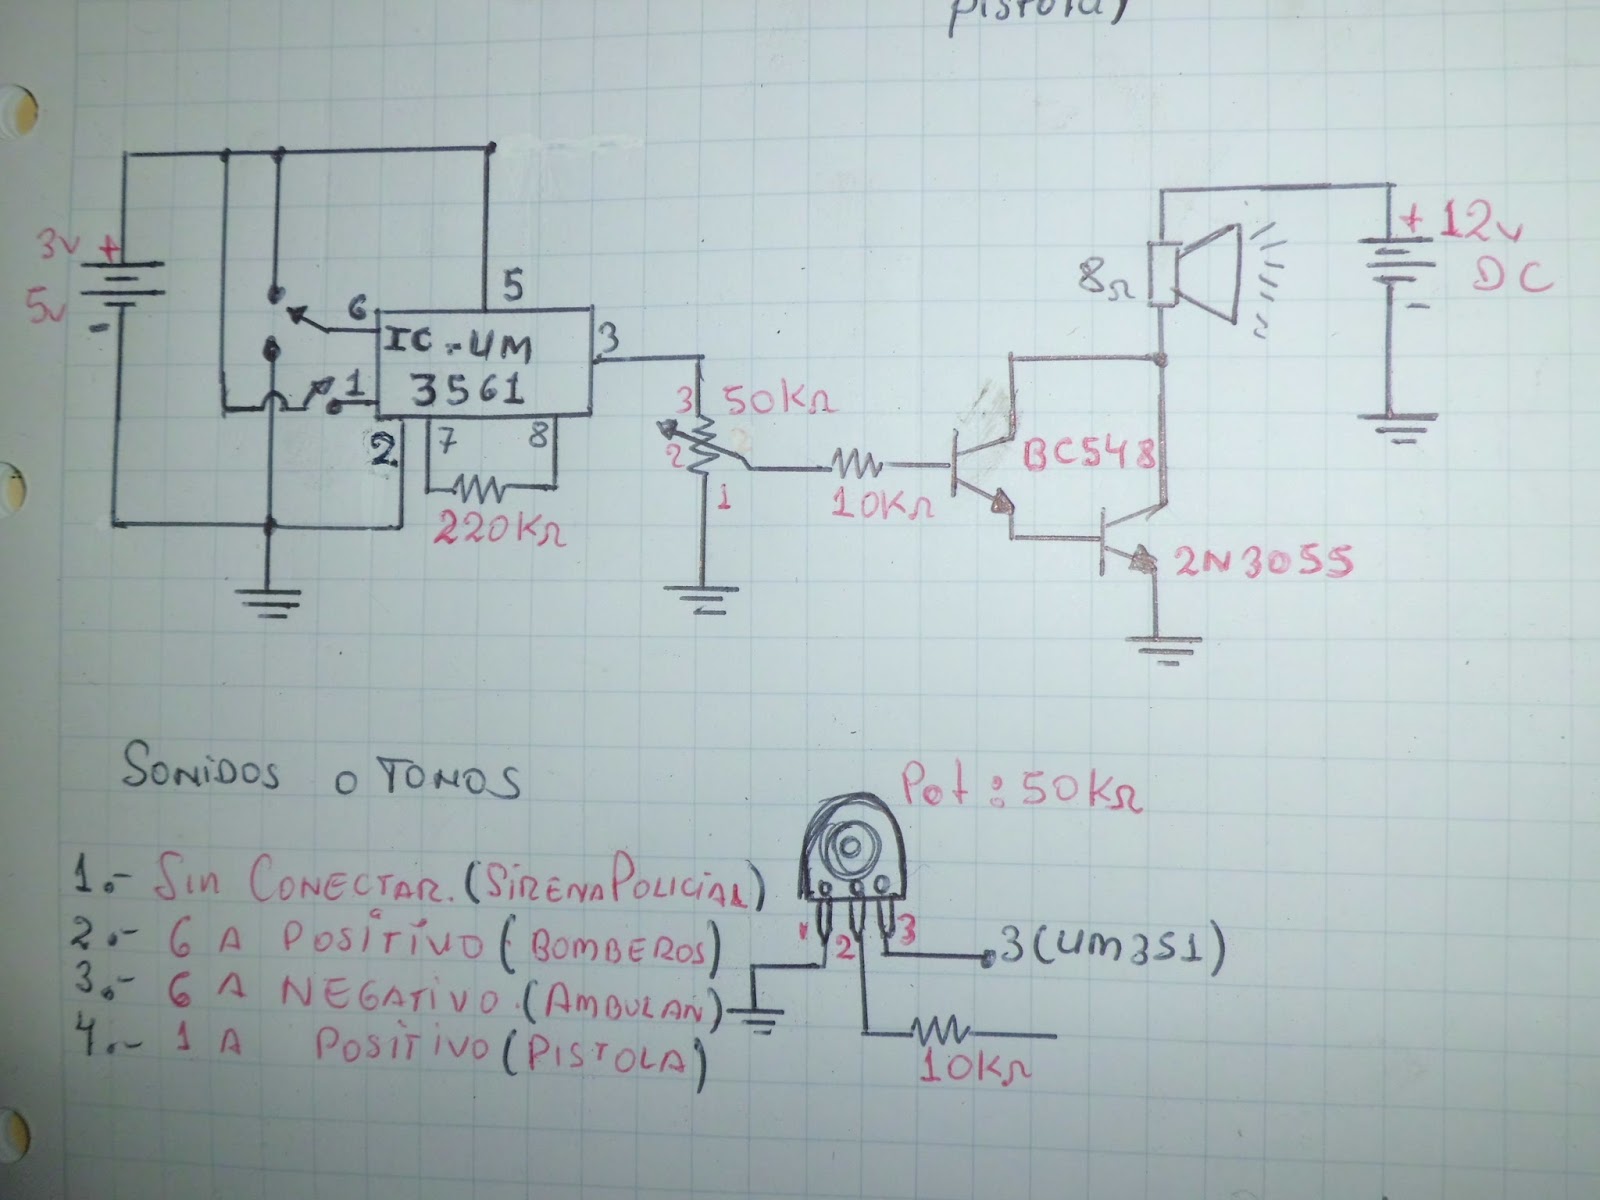 pistola)
3v +
5v -
6
5
IC-UM
3561
1
2
7
8
220KΩ
3
3
50KΩ
2
1
10KΩ
BC548
2N3055
8Ω
+ 12v
DC
-
SONIDOS o TONOS
1.- Sin CONECTAR. (SiRENA POLICIAL)
2.- 6 A POSiTiVO (BOMBEROS)
3.- 6 A NEGATiVO. (AMBULAN)
4.- 1 A POSiTiVO (PISTOLA)
Pot: 50KΩ
1
2
3
3 (UM351)
10KΩ